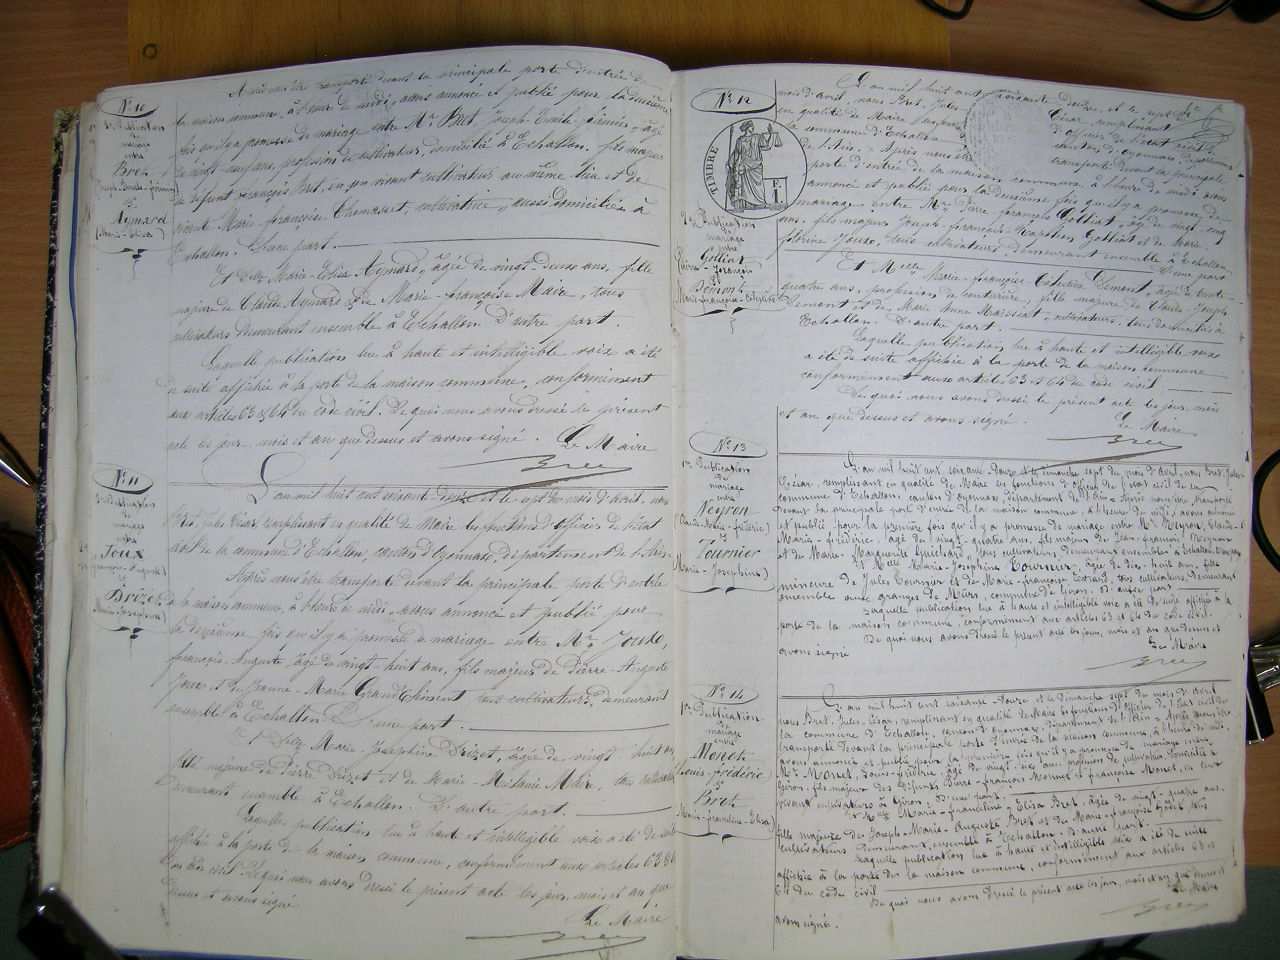 N° 10
2e Publication
de
mariage
entre
Bret
Joseph-Emile-Jérémie
et
Aymard
(Marie-Elisa)
Après nous être transporté devant la principale porte d'entrée de
la maison commune, à l'heure de midi, avons annoncé et publié pour la deuxième
fois qu'il y a promesse de mariage entre Mr Bret Joseph Emile Jérémie, âgé
de vingt ans, profession de cultivateur, domicilié à Echallon, fils majeur
de défunt François Bret, en son vivant cultivateur au même lieu et de
vivante Marie-Françoise Thomasset, cultivatrice, aussi domiciliée à
Echallon. D'une part.
Et Delle Marie-Elisa Aymard, âgée de vingt-deux ans, fille
majeure de Claude Aymard et de Marie-françoise Maire, tous
cultivateurs demeurant ensemble à Echallon. D'autre part.
Laquelle publication lue à haute et intelligible voix a été
de suite affichée à la porte de la maison commune, conformément
aux articles 63 & 64 du code civil. De quoi nous avons dressé le présent
acte les jour, mois et an que dessus et avons signé. Le Maire
Bret
N° 11
2e Publication
de
mariage
entre
Joux
et
Drizet
L'an mil huit cent soixante douze et le sept du mois d'avril, nous
Bret, Jules César, remplissant en qualité de Maire les fonctions d'officier de l'état
civil de la commune d'Echallon, canton d'Oyonnax, département de l'Ain.
Après nous être transporté devant la principale porte d'entrée
de la maison commune, à l'heure de midi, avons annoncé et publié pour
la deuxième fois qu'il y a promesse de mariage entre Mr Joux,
françois-Auguste, âgé de vingt-huit ans, fils majeur de Pierre-Auguste
Joux et de Jeanne-Marie Grandclément tous cultivateurs, demeurant
ensemble à Echallon D'une part.
Et Delle Marie-Joséphine Drizet, âgée de vingt huit ans
fille majeure de Pierre Drizet et de Marie-Mélanie Maire, tous cultivateurs
demeurant ensemble à Echallon. D'autre part.
Laquelle publication lue à haute et intelligible voix a été de suite
affichée à la porte de la maison commune, conformément aux articles 63 & 64
du code civil. De quoi nous avons dressé le présent acte les jour, mois et an que
dessus et avons signé
Le Maire
Bret
N° 12
TIMBRE
2e Publication
de
mariage
entre
Golliat
Pierre-françois
et
Démont
Marie-françoise-Célestine
L'an mil huit cent soixante douze, et le sept
mois d'avril, nous Bret, Jules César, remplissant
en qualité de Maire les fonctions d'officier de l'état civil de
la commune d'Echallon canton d'oyonnax département
de l'Ain. Après nous être transporté devant la principale
porte d'entrée de la maison commune, à l'heure de midi, avons
annoncé et publié pour la deuxième fois qu'il y a promesse de
mariage entre Mr Pierre françois Golliat, âgé de vingt-cinq
ans, fils majeur Joseph-françois Golliat et de Marie
Joux, tous cultivateurs, demeurant ensemble à Echallon
D'une part
Et Melle Marie-françoise Célestine Démont, âgée de trente-
quatre ans, profession de couturière, fille majeure de Claude-Joseph
Démont et de Marie Anne Marssiat, cultivateurs, tous domiciliés à
Echallon. D'autre part.
Laquelle publication lue à haute et intelligible voix
a été de suite affichée à la porte de la maison commune
conformément aux articles 63 et 64 du code civil.
De quoi nous avons dressé le présent acte les jour, mois
et an que dessus et avons signé.
Le Maire
Bret
N° 13
1re Publication
de
mariage
entre
Neyron
(Claude-Marie-fréderic)
et
Tournier
Marie-Josephine)
L'an mil huit cent soixante-douze et le dimanche sept du mois d'avril, nous Bret, Jules-
César, remplissant en qualité de Maire les fonctions d'officier de l'état civil de la
commune d'Echallon, canton d'oyonnax, département de l'Ain. Après nous être transporté
devant la principale porte d'entrée de la maison commune, à l'heure de midi, avons annoncé
et publié pour la première fois qu'il y a promesse de mariage entre Mr Neyron, Claude-
Marie-fréderic, âgé de vingt-quatre ans, fils majeur de Jean-françois Neyron
et de Marie-Marguerite Guichard, tous cultivateurs, demeurant ensemble à Echallon. D'une part
Et Melle Marie-Josephine Tournier, âgée de dix-huit ans, fille
mineure de Jules Tournier et de Marie-françoise, tous cultivateurs, demeurant
ensemble aux granges de Mûrs, commune de Giron. D'autre part
Laquelle publication lue à haute et intelligible voix a été de suite affichée à la
porte de la maison commune conformément aux articles 63 et 64 du code civil.
De quoi nous avons dressé le présent acte les jour, mois et an que dessus et
avons signé
Le Maire
Bret
N° 14
1re Publication
de
mariage
entre
Monet
(Louis-fréderic)
et
Bret
(Marie-francéline-Elisa)
L'an mil huit cent soixante-douze et le dimanche sept du mois d'avril
nous Bret, Jules-César, remplissant en qualité de Maire les fonctions d'officier de l'état civil de
la commune d'Echallon, canton d'oyonnax, département de l'Ain. Après nous être
transporté devant la principale porte d'entrée de la maison commune, à l'heure de midi,
avons annoncé et publié pour la première fois qu'il y a promesse de mariage entre
Mr Monet, Louis-fréderic, âgé de vingt-six ans, profession de cultivateur, domicilié à
Giron, fils majeur des défunts Pierre-françois Monnet et françoise Monet, en leur
vivant cultivateurs à Giron, D'une part.
Et Melle Marie-francéline-Elisa Bret, âgée de vingt-quatre ans,
fille majeure de Joseph-Marie-Auguste Bret et de Marie-françoise tous
cultivateurs demeurant ensemble à Echallon. D'autre part.
Laquelle publication lue à haute et intelligible voix a été de suite
affichée à la porte de la maison commune, conformément aux articles 63 et
64 du code civil
De quoi nous avons dressé le présent acte les jour, mois et an que dessus et
avons signé.
Le Maire
Bret